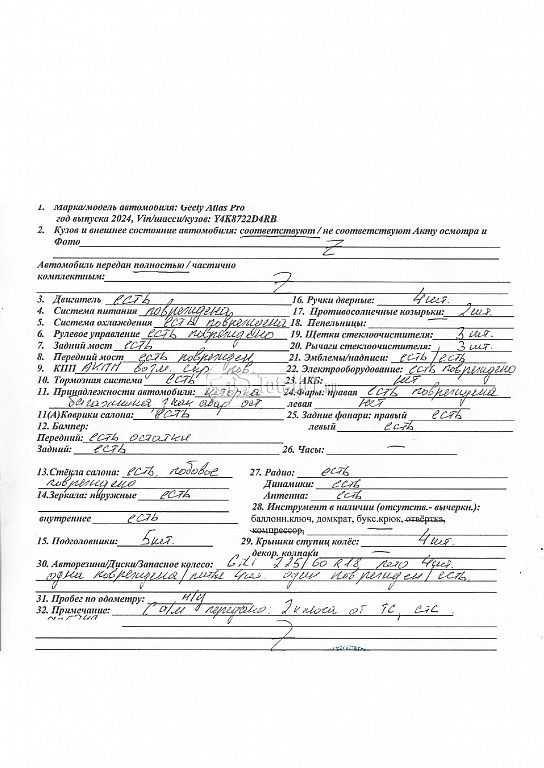 1. Марка/модель автомобиля: Geely Atlas Pro
год выпуска 2024, Vin/шасси/кузов: Y4K8722D4RB
2. Кузов и внешнее состояние автомобиля: соответствуют / не соответствуют Акту осмотра и
Фото
Автомобиль передан полностью / частично
комплектным:
3. Двигатель есть 16. Ручки дверные: 4 шт.
4. Система питания повреждена 17. Противосолнечные козырьки: 2 шт.
5. Система охлаждения есть повреждена 18. Пепельницы:
6. Рулевое управление есть повреждено 19. Щетки стеклоочистителя: 3 шт.
7. Задний мост есть 20. Рычаги стеклоочистителя: 3 шт.
8. Передний мост есть поврежден 21. Эмблемы/надписи: есть/есть
9. КПП АКПП возм. скр. пов. 22. Электрооборудование: есть повреждено
10. Тормозная система есть 23. АКБ: нет
11. Принадлежности автомобиля: шторка 24. Фары: правая есть повреждена
багажника знак авар ост левая нет
11(А)Коврики салона: есть 25. Задние фонари: правый есть
12. Бампер: левый есть
Передний: есть остатки
Задний: есть 26. Часы:
13.Стёкла салона: есть, лобовое 27. Радио: есть
повреждено Динамики: есть
14.Зеркала: наружные есть Антенна: есть
28. Инструмент в наличии (отсутств.- вычеркн.):
внутреннее есть баллонн.ключ, домкрат, букс.крюк, отвёртка,
компрессор,
15. Подголовники: 5 шт. 29. Крышки ступиц колёс: 4 шт.
декор. колпаки
30. Авторезина/Диски/Запасное колесо: Giti 225/60 R18 лето 4 шт.
одна повреждена/литые 4 шт. один поврежден/есть
31. Пробег по одометру: н/у
32. Примечание: С а/м передано: 2 ключа от ТС, СТС